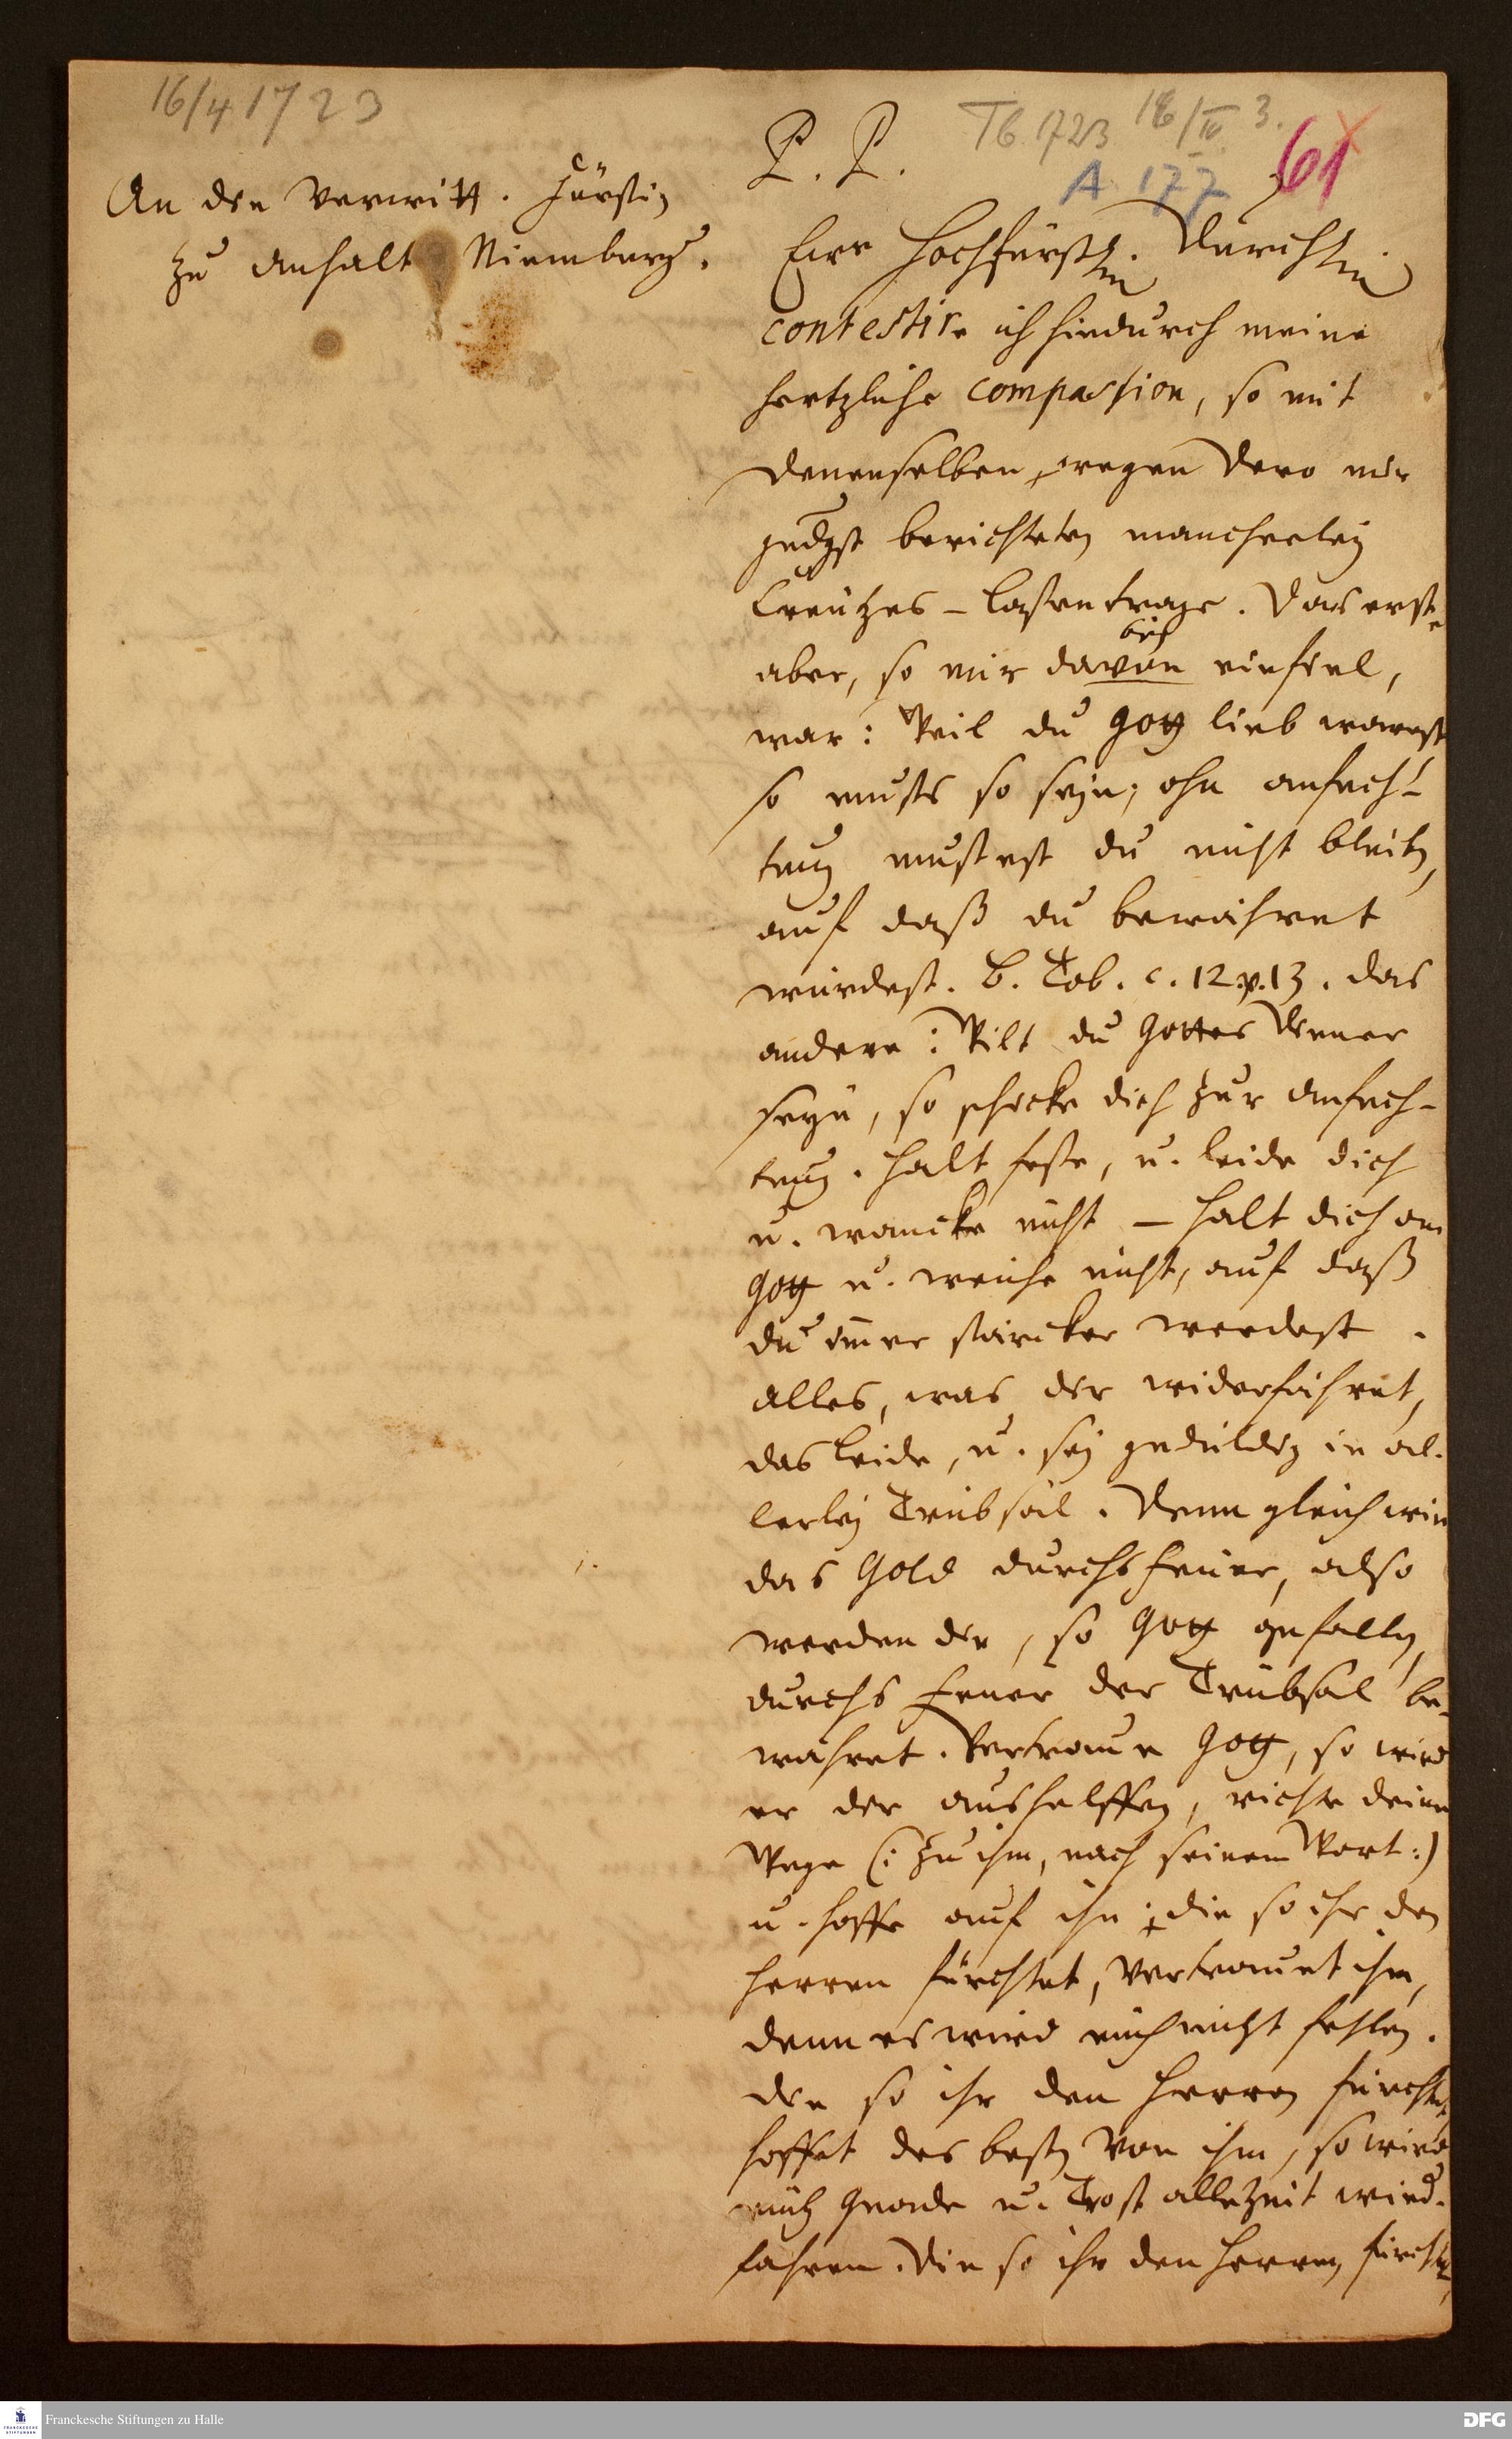 16/4 1723
Tb. 1723 16/IV 3.
A 177
61
An die verwitt. Fürstin
zu Anhalt Niemburg.
P. P.
Eure Hochfürstl. Durchl.
contestire ich hiedurch meine
hertzliche compassion, so mit
denenselben wegen dero mir
gndgst berichteten mancherley
Creutzes-Lasten trage. Das erste
aber, so mir davon einfiel,
war: Weil du Gott lieb warest
so musts so seyn; ohn anfech-
tung mustest du nicht bleiben,
auf daß du bewähret
würdest. B. Tob. c. 12. v. 13. das
andere: Wilt du Gottes Diener
seyn, so schicke dich zur anfech-
tung. halt feste, u. leide dich
u. wancke nicht – halt dich an
Gott u. weiche nicht, auf daß
du immer stärcker werdest.
alles, was dir widerfähret,
das leide, u. sey geduldig in al-
lerley Trübsal. Denn gleich wie
das Gold durchs feuer, also
werden die, so Gott gefallen,
durchs feuer der Trübsal be-
währet. Vertraue Gott, so wird
er dir aushelffen, richte deine
Wege (: zu ihm, nach seinem Wort :)
u. hoffe auf ihn; die so ihr den
Herren fürchtet, vertrauet ihm,
denn es wird euch nicht fehlen.
die so ihr den Herren fürchtet,
hoffet des besten von ihm, so wird
euch Gnade u. Trost allezeit wied.
fahren. Die so ihr den Herren fürchtet,
Franckesche Stiftungen zu Halle
DFG